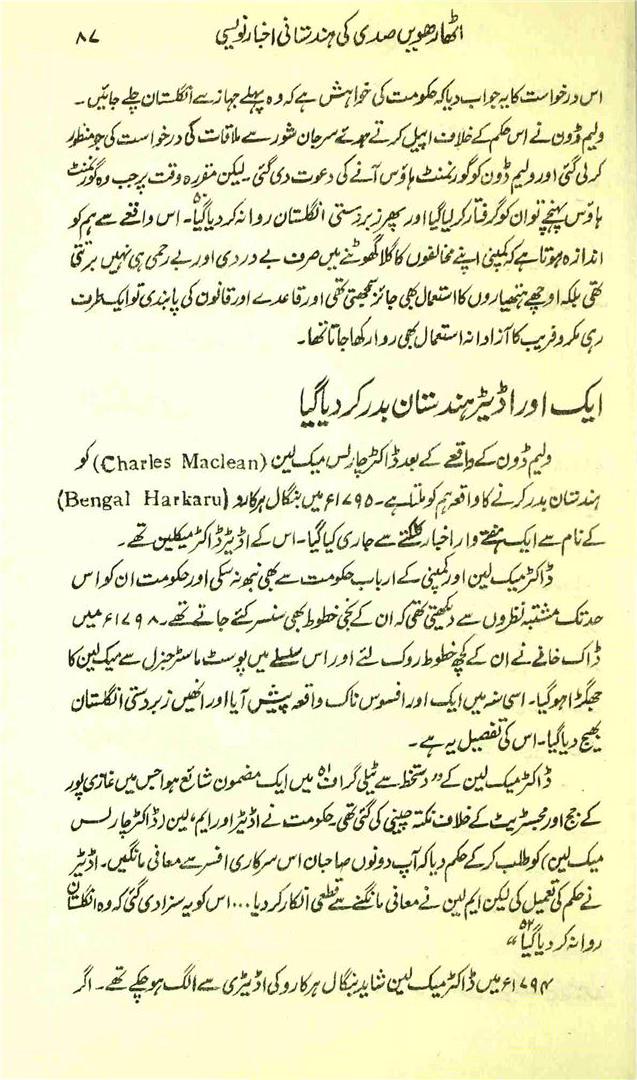 اٹھارھویں صدی کی ہندستانی اخبار نویسی ۸۷
اس درخواست کا یہ جواب دیا کہ حکومت کی خواہش ہے کہ وہ پہلے جہاز سے انگلستان چلے جائیں۔
ولیم ڈون نے اس حکم کے خلاف اپیل کرتے ہوئے سر جان شور سے ملاقات کی درخواست کی جو منظور
کر لی گئی اور ولیم ڈون کو گورنمنٹ ہاؤس آنے کی دعوت دی گئی۔ لیکن مقررہ وقت پر جب وہ گورنمنٹ
ہاؤس پہنچے تو ان کو گرفتار کر لیا گیا اور پھر زبردستی انگلستان روانہ کر دیا گیا۔۵۰ اس واقعے سے ہم کو
اندازہ ہوتا ہے کہ کمپنی اپنے مخالفوں کا گلا گھونٹنے میں صرف بے دردی اور بے رحمی ہی نہیں برتتی
تھی بلکہ اوچھے ہتھیاروں کا استعمال بھی جائز سمجھتی تھی اور قاعدے اور قانون کی پابندی تو ایک طرف
رہی مکر و فریب کا آزادانہ استعمال بھی روا رکھا جاتا تھا۔
ایک اور اڈیٹر ہندستان بدر کر دیا گیا
ولیم ڈون کے واقعے کے بعد ڈاکٹر چارلس میک لین (Charles Maclean) کو
ہندستان بدر کرنے کا واقعہ ہم کو ملتا ہے۔ ۱۷۹۵ء میں بنگال ہرکارو (Bengal Harkaru)
کے نام سے ایک ہفتے وار اخبار کلکتے سے جاری کیا گیا۔ اس کے اڈیٹر ڈاکٹر میکلین تھے۔
ڈاکٹر میک لین اور کمپنی کے ارباب حکومت سے بھی نبھ نہ سکی اور حکومت ان کو اس
حد تک مشتبہ نظروں سے دیکھتی تھی کہ ان کے نجی خطوط بھی سنسر کئے جاتے تھے۔ ۱۷۹۸ء میں
ڈاک خانے نے ان کے کچھ خطوط روک لئے اور اس سلسلے میں پوسٹ ماسٹر جنرل سے میک لین کا
جھگڑا ہو گیا۔ اسی سنہ میں ایک اور افسوس ناک واقعہ پیش آیا اور انھیں زبردستی انگلستان
بھیج دیا گیا۔ اس کی تفصیل یہ ہے۔
ڈاکٹر میک لین کے "دستخط سے ٹیلی گراف۵۱ میں ایک مضمون شائع ہوا جس میں غازی پور
کے جج اور مجسٹریٹ کے خلاف نکتہ چینی کی گئی تھی۔ حکومت نے اڈیٹر اور ایم، لین (ڈاکٹر چارلس
میک لین) کو طلب کر کے حکم دیا کہ آپ دونوں صاحبان اس سرکاری افسر سے معافی مانگیں۔ اڈیٹر
نے حکم کی تعمیل کی لیکن ایم لین نے معافی مانگنے سے قطعی انکار کر دیا... اس کو یہ سزا دی گئی کہ وہ انگلستان
روانہ کر دیا گیا۵۲"
۱۷۹۴ء میں ڈاکٹر میک لین شاید بنگال ہرکارو کی اڈیٹری سے الگ ہو چکے تھے۔ اگر